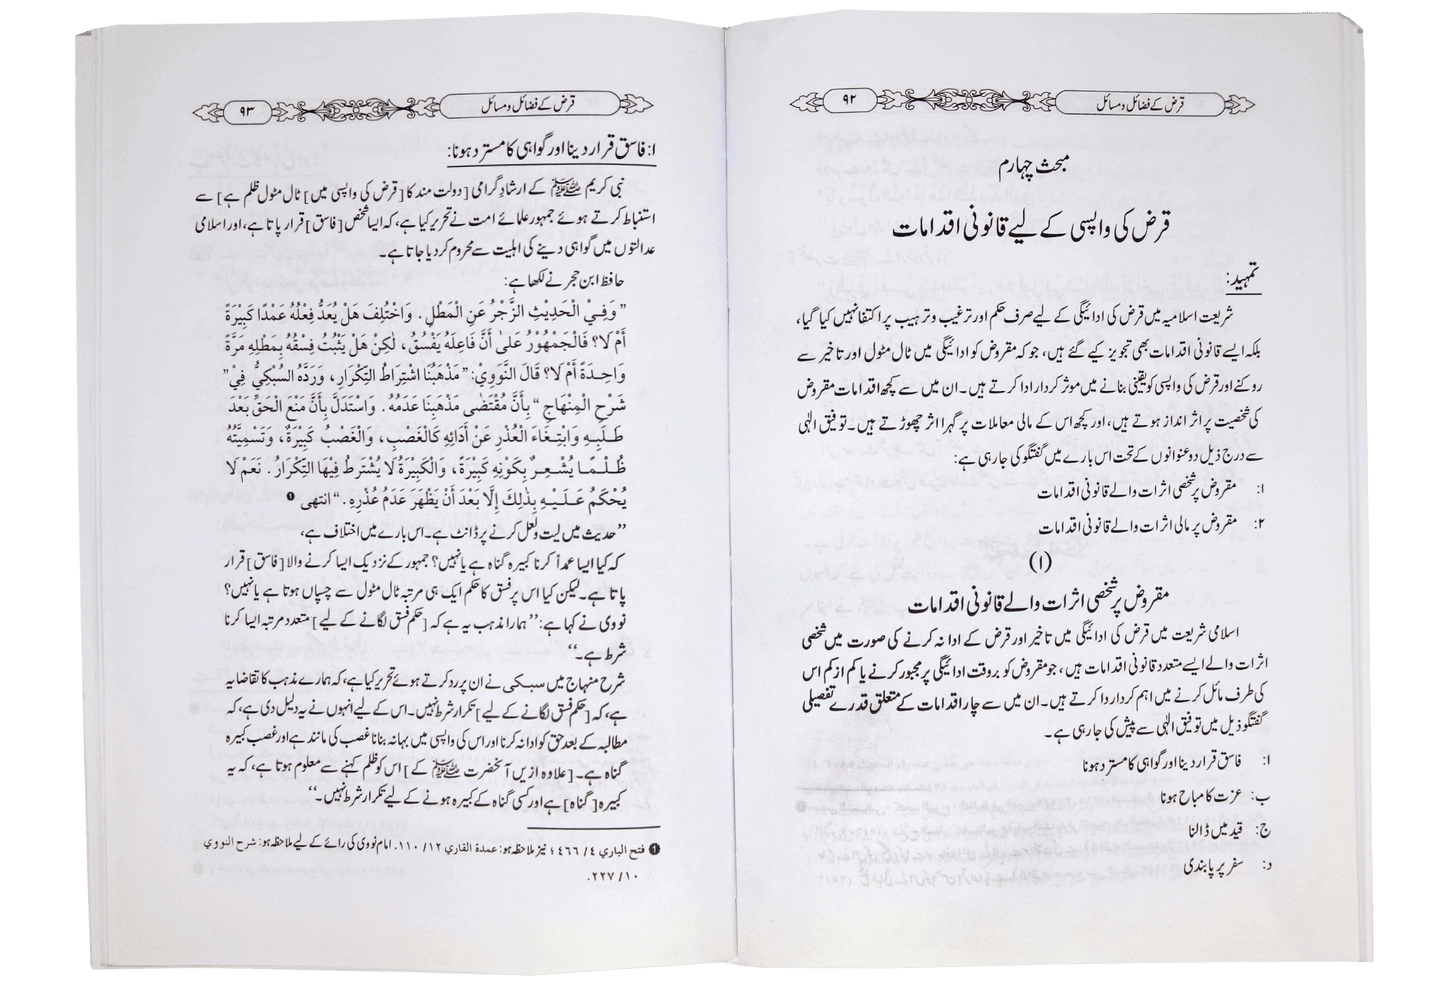 قرض کے فضائل و مسائل
۹۲
مبحث چہارم
قرض کی واپسی کے لیے قانونی اقدامات
تمہید:
شریعت اسلامیہ میں قرض کی ادائیگی کے لیے صرف حکم اور ترغیب و ترہیب پر اکتفا نہیں کیا گیا،
بلکہ ایسے قانونی اقدامات بھی تجویز کیے گئے ہیں، جو کہ مقروض کو ادائیگی میں ٹال مٹول اور تاخیر سے
روکنے اور قرض کی واپسی کو یقینی بنانے میں موثر کردار ادا کرتے ہیں۔ ان میں سے کچھ اقدامات مقروض
کی شخصیت پر اثر انداز ہوتے ہیں، اور کچھ اس کے مالی معاملات پر گہرا اثر چھوڑتے ہیں۔ توفیق الٰہی
سے درج ذیل دو عنوانوں کے تحت اس بارے میں گفتگو کی جا رہی ہے:
۱: مقروض پر شخصی اثرات والے قانونی اقدامات
۲: مقروض پر مالی اثرات والے قانونی اقدامات
(۱)
مقروض پر شخصی اثرات والے قانونی اقدامات
اسلامی شریعت میں قرض کی ادائیگی میں تاخیر اور قرض کے ادا نہ کرنے کی صورت میں شخصی
اثرات والے ایسے متعدد قانونی اقدامات ہیں، جو مقروض کو بروقت ادائیگی پر مجبور کرنے یا کم از کم اس
کی طرف مائل کرنے میں اہم کردار ادا کرتے ہیں۔ ان میں سے چار اقدامات کے متعلق قدرے تفصیلی
گفتگو ذیل میں توفیق الٰہی سے پیش کی جا رہی ہے۔
ا: فاسق قرار دینا اور گواہی کا مسترد ہونا
ب: عزت کا مباح ہونا
ج: قید میں ڈالنا
د: سفر پر پابندی
قرض کے فضائل و مسائل
۹۳
ا: فاسق قرار دینا اور گواہی کا مسترد ہونا:
نبی کریم ﷺ کے ارشادِ گرامی [دولت مند کا [قرض کی واپسی میں] ٹال مٹول ظلم ہے] سے
استنباط کرتے ہوئے جمہور علمائے امت نے تحریر کیا ہے، کہ ایسا شخص [فاسق] قرار پاتا ہے، اور اسلامی
عدالتوں میں گواہی دینے کی اہلیت سے محروم کر دیا جاتا ہے۔
حافظ ابن حجر نے لکھا ہے:
”وَفِيْ الْحَدِيْثِ الزَّجْرُ عَنِ الْمَطْلِ. وَاخْتُلِفَ هَلْ يُعَدُّ فِعْلُهُ عَمْدًا كَبِيْرَةً
أَمْ لَا؟ فَالْجَمْهُوْرُ عَلىٰ أَنَّ فَاعِلَهُ يَفْسُقُ، لٰكِنْ هَلْ يَثْبُتُ فِسْقُهُ بِمَطْلِهِ مَرَّةً
وَاحِدَةً أَمْ لَا؟ قَالَ النَّوَوِيْ: ”مَذْهَبُنَا اشْتِرَاطُ التِّكْرَارِ، وَرَدَّهُ السُبْكِيُّ فِيْ ”
شَرْحِ الْمِنْهَاجِ“ بِأَنَّ مُقْتَضٰى مَذْهَبِنَا عَدَمُهُ. وَاسْتَدَلَّ بِأَنَّ مَنْعَ الْحَقِّ بَعْدَ
طَلَبِهِ وَابْتِغَاءَ الْعُذْرِ عَنْ أَدَائِهِ كَالْغَصْبِ، وَالْغَصْبُ كَبِيْرَةٌ، وَتَسْمِيَتُهُ
ظُلْمًا يُشْعِرُ بِكَوْنِهِ كَبِيْرَةً، وَالْكَبِيْرَةُ لَا يُشْتَرطُ فِيْهَا التِّكْرَارُ. نَعَمْ لَا
يُحْكَمُ عَلَيْهِ بِذٰلِكَ إِلَّا بَعْدَ أَنْ يَظْهَرَ عَدَمُ عُذْرِهِ.“ انتهى ❶
’’حدیث میں لیت و لعل کرنے پر ڈانٹ ہے۔ اس بارے میں اختلاف ہے،
کہ کیا ایسا عمداً کرنا کبیرہ گناہ ہے یا نہیں؟ جمہور کے نزدیک ایسا کرنے والا [فاسق] قرار
پاتا ہے۔ لیکن کیا اس پر فسق کا حکم ایک ہی مرتبہ ٹال مٹول سے چسپاں ہوتا ہے یا نہیں؟
نووی نے کہا ہے: ’’ہمارا مذہب یہ ہے کہ [حکمِ فسق لگانے کے لیے] متعدد مرتبہ ایسا کرنا
شرط ہے۔‘‘
شرح منہاج میں سبکی نے ان پر رد کرتے ہوئے تحریر کیا ہے، کہ ہمارے مذہب کا تقاضا یہ
ہے، کہ [حکم فسق لگانے کے لیے] تکرار شرط نہیں۔ اس کے لیے انہوں نے یہ دلیل دی ہے، کہ
مطالبہ کے بعد حق کو ادا نہ کرنا اور اس کی واپسی میں بہانہ بنانا غصب کی مانند ہے اور غصب کبیرہ
گناہ ہے۔ [علاوہ ازیں آنحضرت ﷺ کے] اس کو ظلم کہنے سے معلوم ہوتا ہے، کہ یہ
کبیرہ [گناہ] ہے اور کسی گناہ کے کبیرہ ہونے کے لیے تکرار شرط نہیں۔‘‘
❶ فتح الباري ۴/ ۴۶۶؛ نیز ملاحظہ ہو: عمدة القاري ۱۲/ ۱۱۰. امام نووی کی رائے کے لیے ملاحظہ ہو: شرح النووي
۱۰/ ۲۲۷.